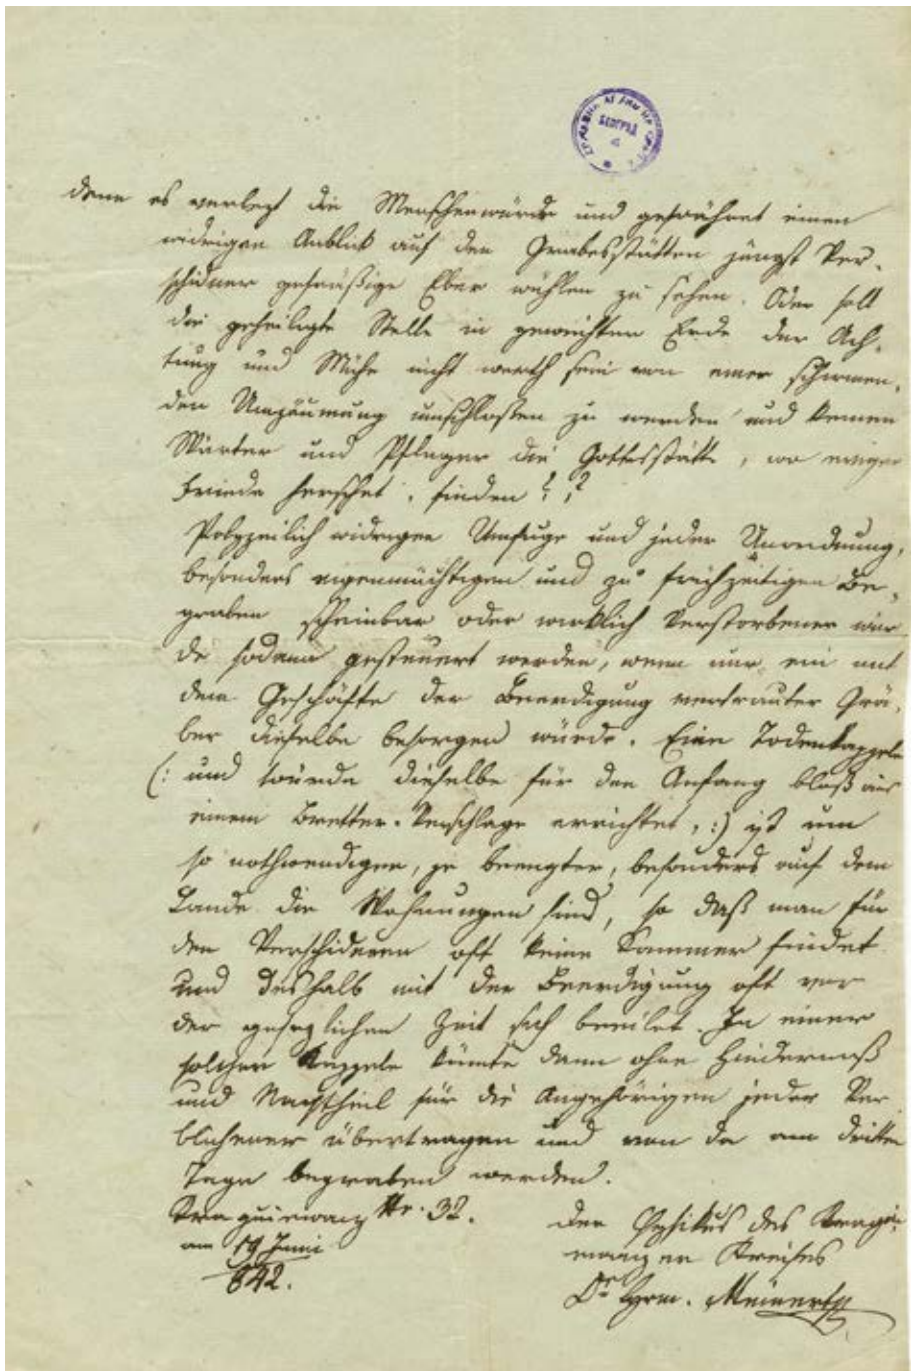 БЕОГРАД
denn es verlezt die Menschenwürde und gewähret einen
widrigen Anblick auf den Grabesstätten jüngst Ver-
schidner gefräßige Eber wühlen zu sehen. Oder soll
die geheiligte Stelle in geweihter Erde der Ach-
tung und Mühe nicht werth sein von einer schirmen-
den Umzäunung umschlossen zu werden und keinen
Wärter und Pfleger die Gottesstätte, wo ewiger
Friede herschet, finden??
Polyzeilich widrigen Unfuge und jeder Unordnung,
besonders eigenmächtigen und zu frühzeitigen Be-
graben scheinbar oder wirklich Verstorbener wür
de sodann gesteuert werden, wenn nur ein mit
dem Geschäfte der Beerdigung vertrauter Grä-
ber dieselbe besorgen würde. Eine Todenkappele
(: und würde dieselbe für den Anfang bloß aus
einem Bretter-Verschlage errichtet, :) ist um
so nothwendiger, je beengter, besonders auf dem
Lande die Wohnungen sind, so daß man für
den Verschidenen oft keine Kammer findet
und deshalb mit der Beerdigung oft vor
der gesezlichen Zeit sich beeilet. In einer
solchen Kappele könnte dann ohne Hinderniß
und Nachtheil für die Angehörigen jeder Ver
blichener übertragen und von da am dritten
Tage begraben werden.
Kraguiewatz Nr. 32.
am 19 Juni
842.
Der Physikus des Kragu-
iewatzer Kreises
Dr Herm. Meinertz